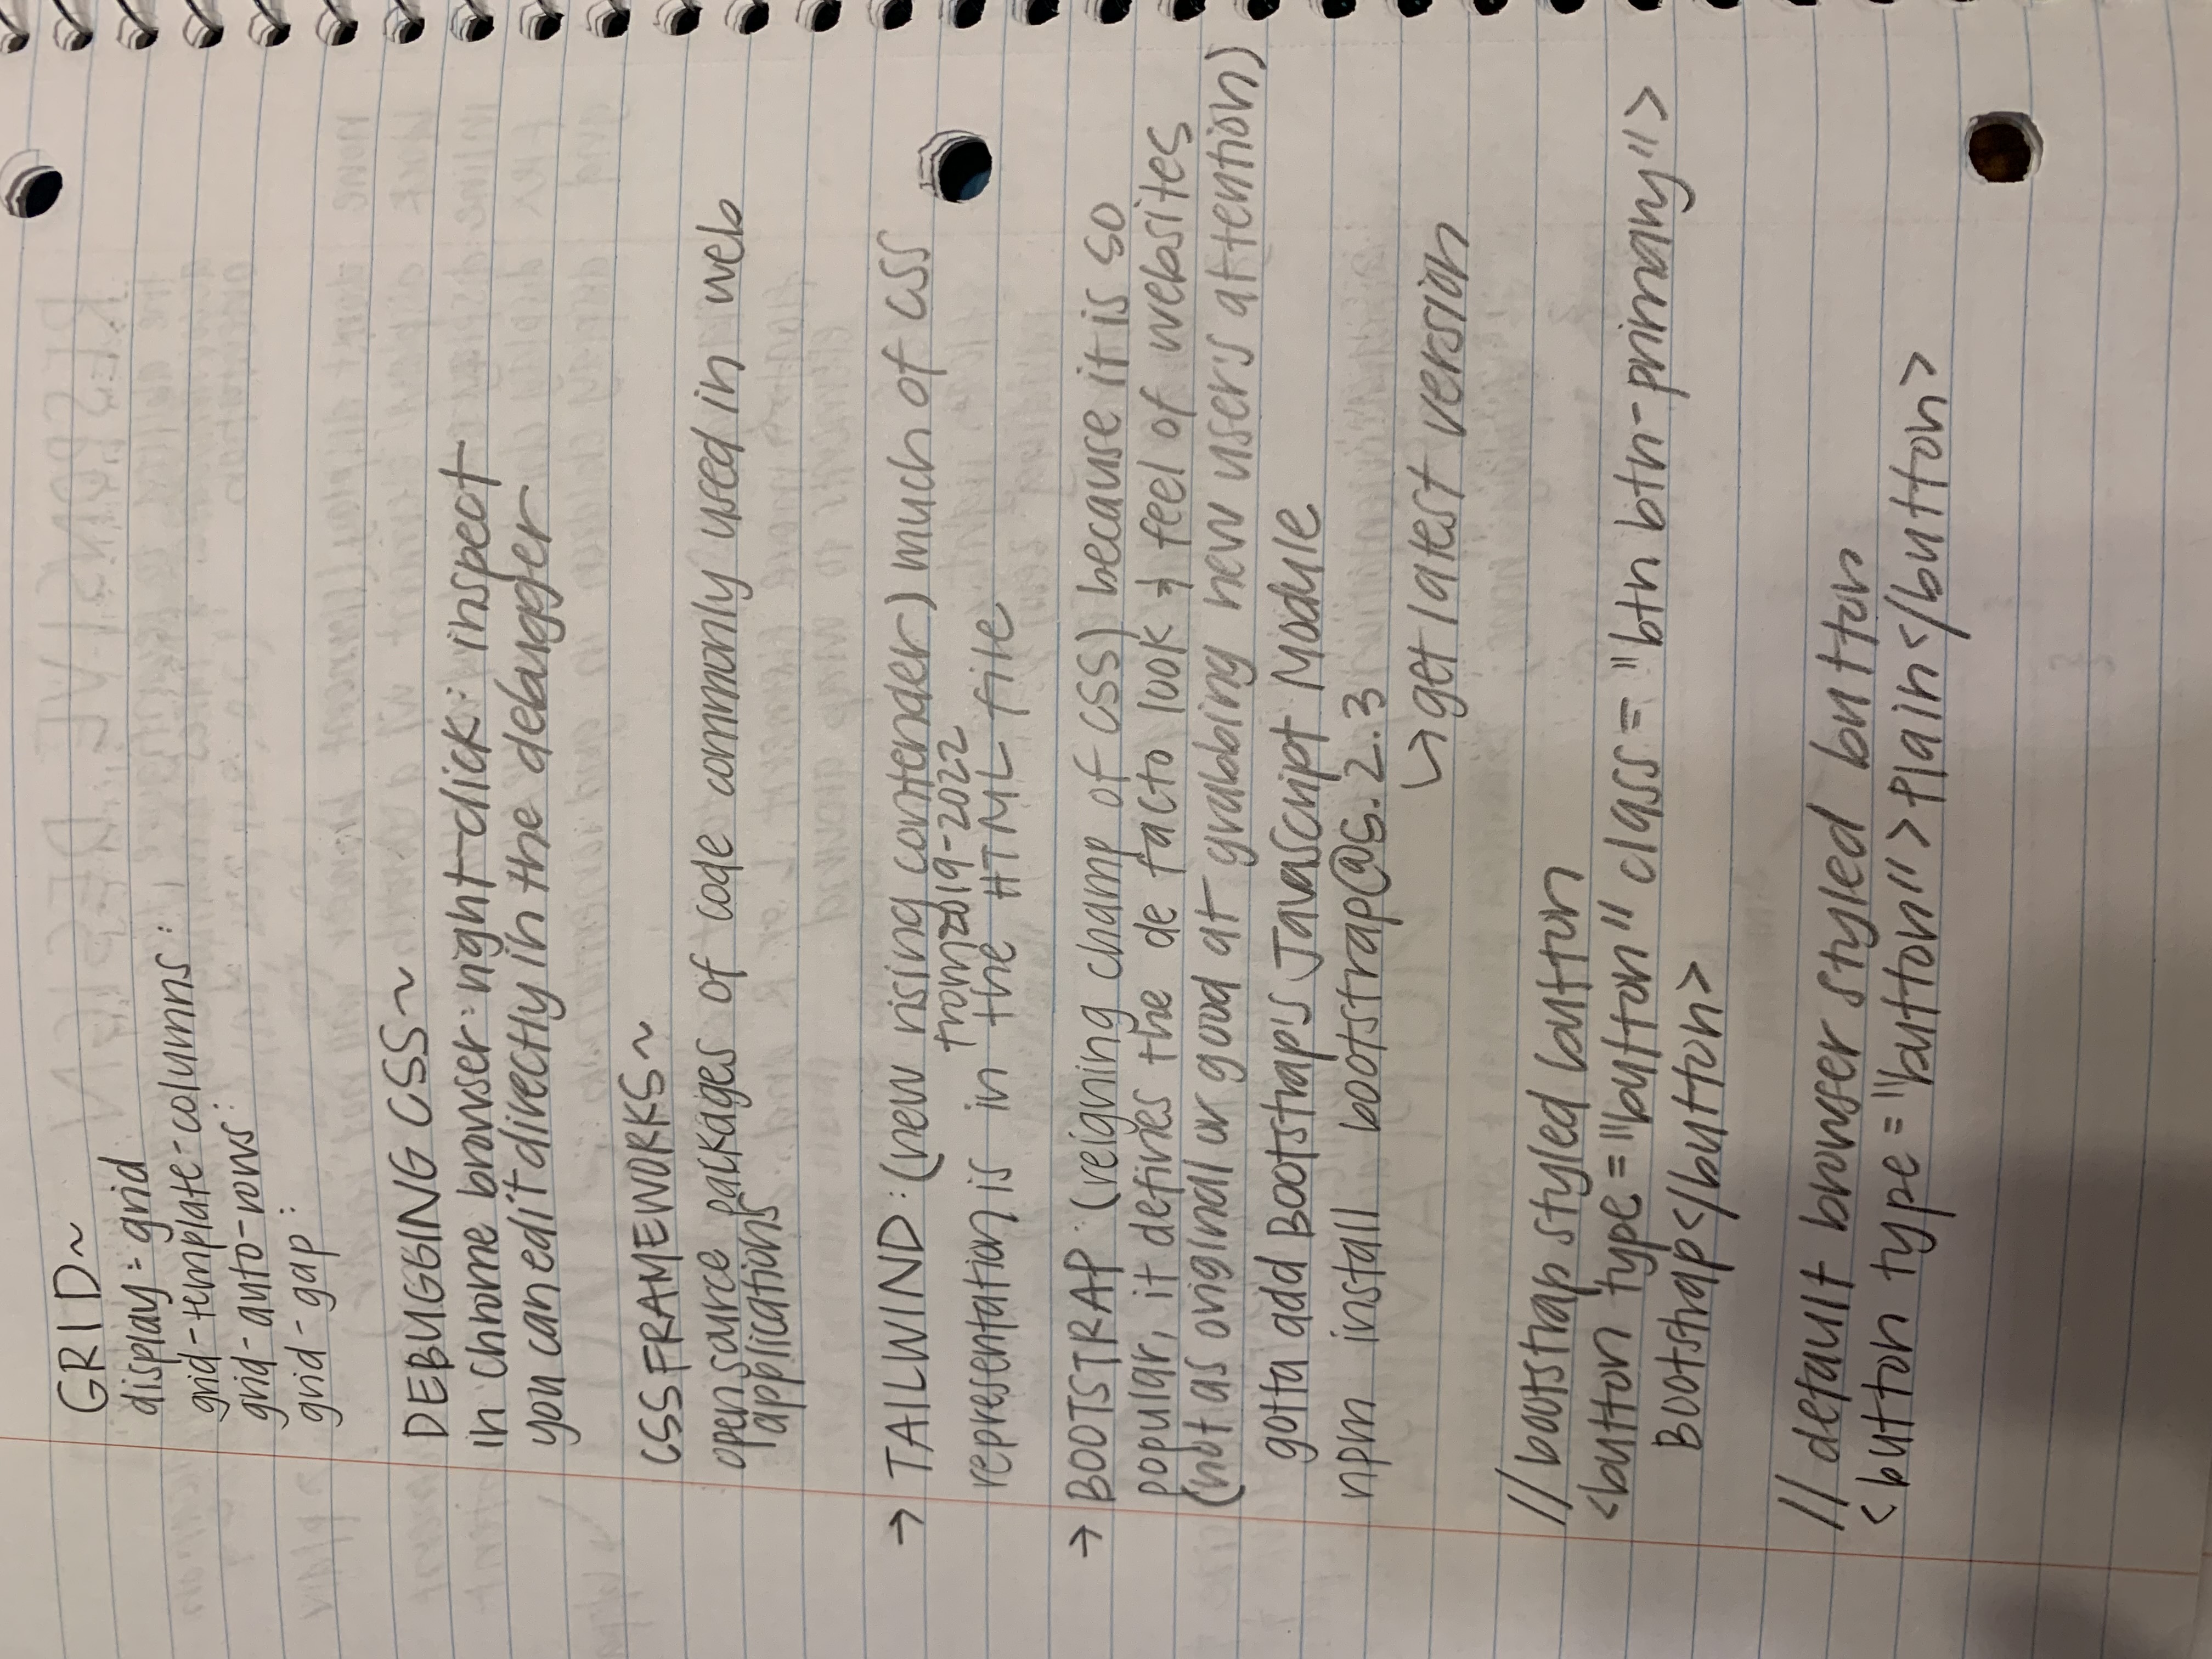 GRID~
display: grid
grid-template-columns:
grid-auto-rows:
grid-gap:
DEBUGGING CSS~
in chrome browser: right-click: inspect
you can edit directly in the debugger
CSS FRAMEWORKS~
open source packages of code commonly used in web
applications
→ TAILWIND: (new rising contender) much of CSS
from 2019-2022
representation is in the HTML file
→ BOOTSTRAP: (reigning champ of CSS) because it is so
popular, it defines the de facto look & feel of websites
(not as original or good at grabbing new user's attention)
gotta add Bootstrap's Javascript Module
npm install bootstrap@5.2.3
↳ get latest version
// bootstrap styled button
<button type="button" class="btn btn-primary">
Bootstrap</button>
// default browser styled button
<button type="button">Plain</button>